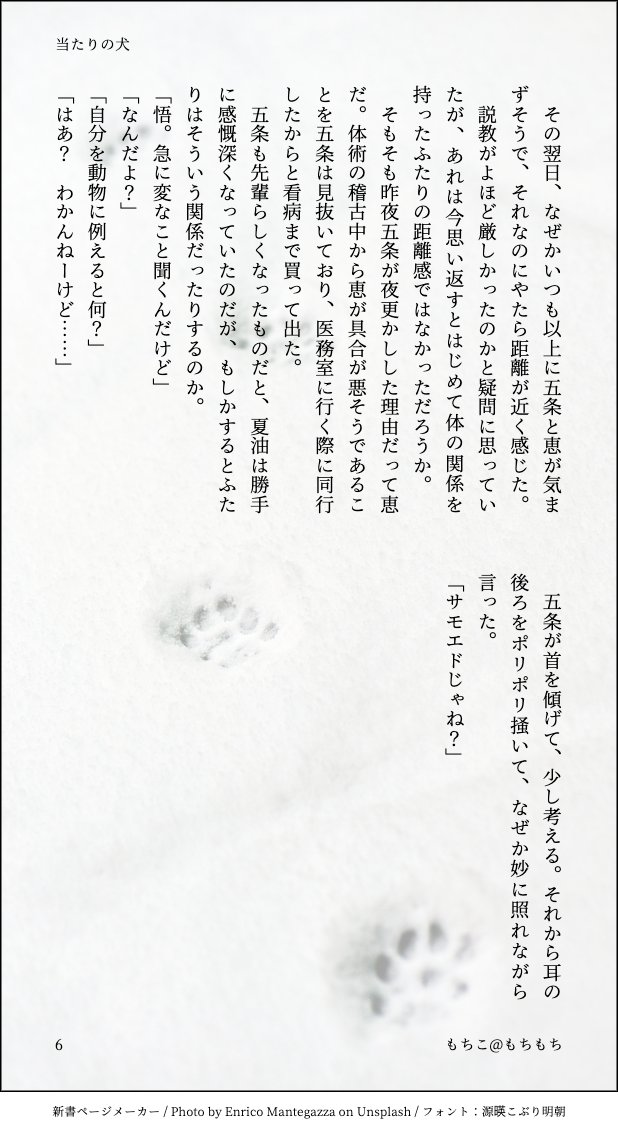 当たりの犬
　その翌日、なぜかいつも以上に五条と恵が気ま
ずそうで、それなのにやたら距離が近く感じた。
　説教がよほど厳しかったのかと疑問に思ってい
たが、あれは今思い返すとはじめて体の関係を
持ったふたりの距離感ではなかっただろうか。
　そもそも昨夜五条が夜更かしした理由だって恵
だ。体術の稽古中から恵が具合が悪そうであるこ
とを五条は見抜いており、医務室に行く際に同行
したからと看病まで買って出た。
　五条も先輩らしくなったものだと、夏油は勝手
に感慨深くなっていたのだが、もしかするとふた
りはそういう関係だったりするのか。
「悟。急に変なこと聞くんだけど」
「なんだよ？」
「自分を動物に例えると何？」
「はあ？　わかんねーけど……」
　五条が首を傾げて、少し考える。それから耳の
後ろをポリポリ掻いて、なぜか妙に照れながら
言った。
「サモエドじゃね？」
6
もちこ@もちもち
新書ページメーカー / Photo by Enrico Mantegazza on Unsplash / フォント：源暎こぶり明朝